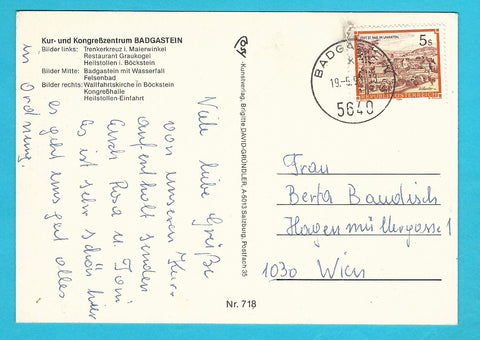 Kur- und Kongreßzentrum BADGASTEIN
Bilder links: Trenkerkreuz i. Maierwinkel
Restaurant Graukogel
Heilstollen i. Böckstein
Bilder Mitte: Badgastein mit Wasserfall
Felsenbad
Bilder rechts: Wallfahrtskirche in Böckstein
Kongreßhalle
Heilstollen-Einfahrt
Viele liebe Grüße
von unseren Kur-
aufenthalt senden
euch Rosa u. Toni
es ist sehr schön hier
es geht uns gut alles
in Ordnung.
-Kunstverlag, Brigitte DAVID-GRÜNDLER, A-5013 Salzburg, Postfach 35
Nr. 718
5s
REPUBLIK ÖSTERREICH
BADGA
5640
Frau
Berta Baudisch
Hagenmüllergasse 1
1030 Wien